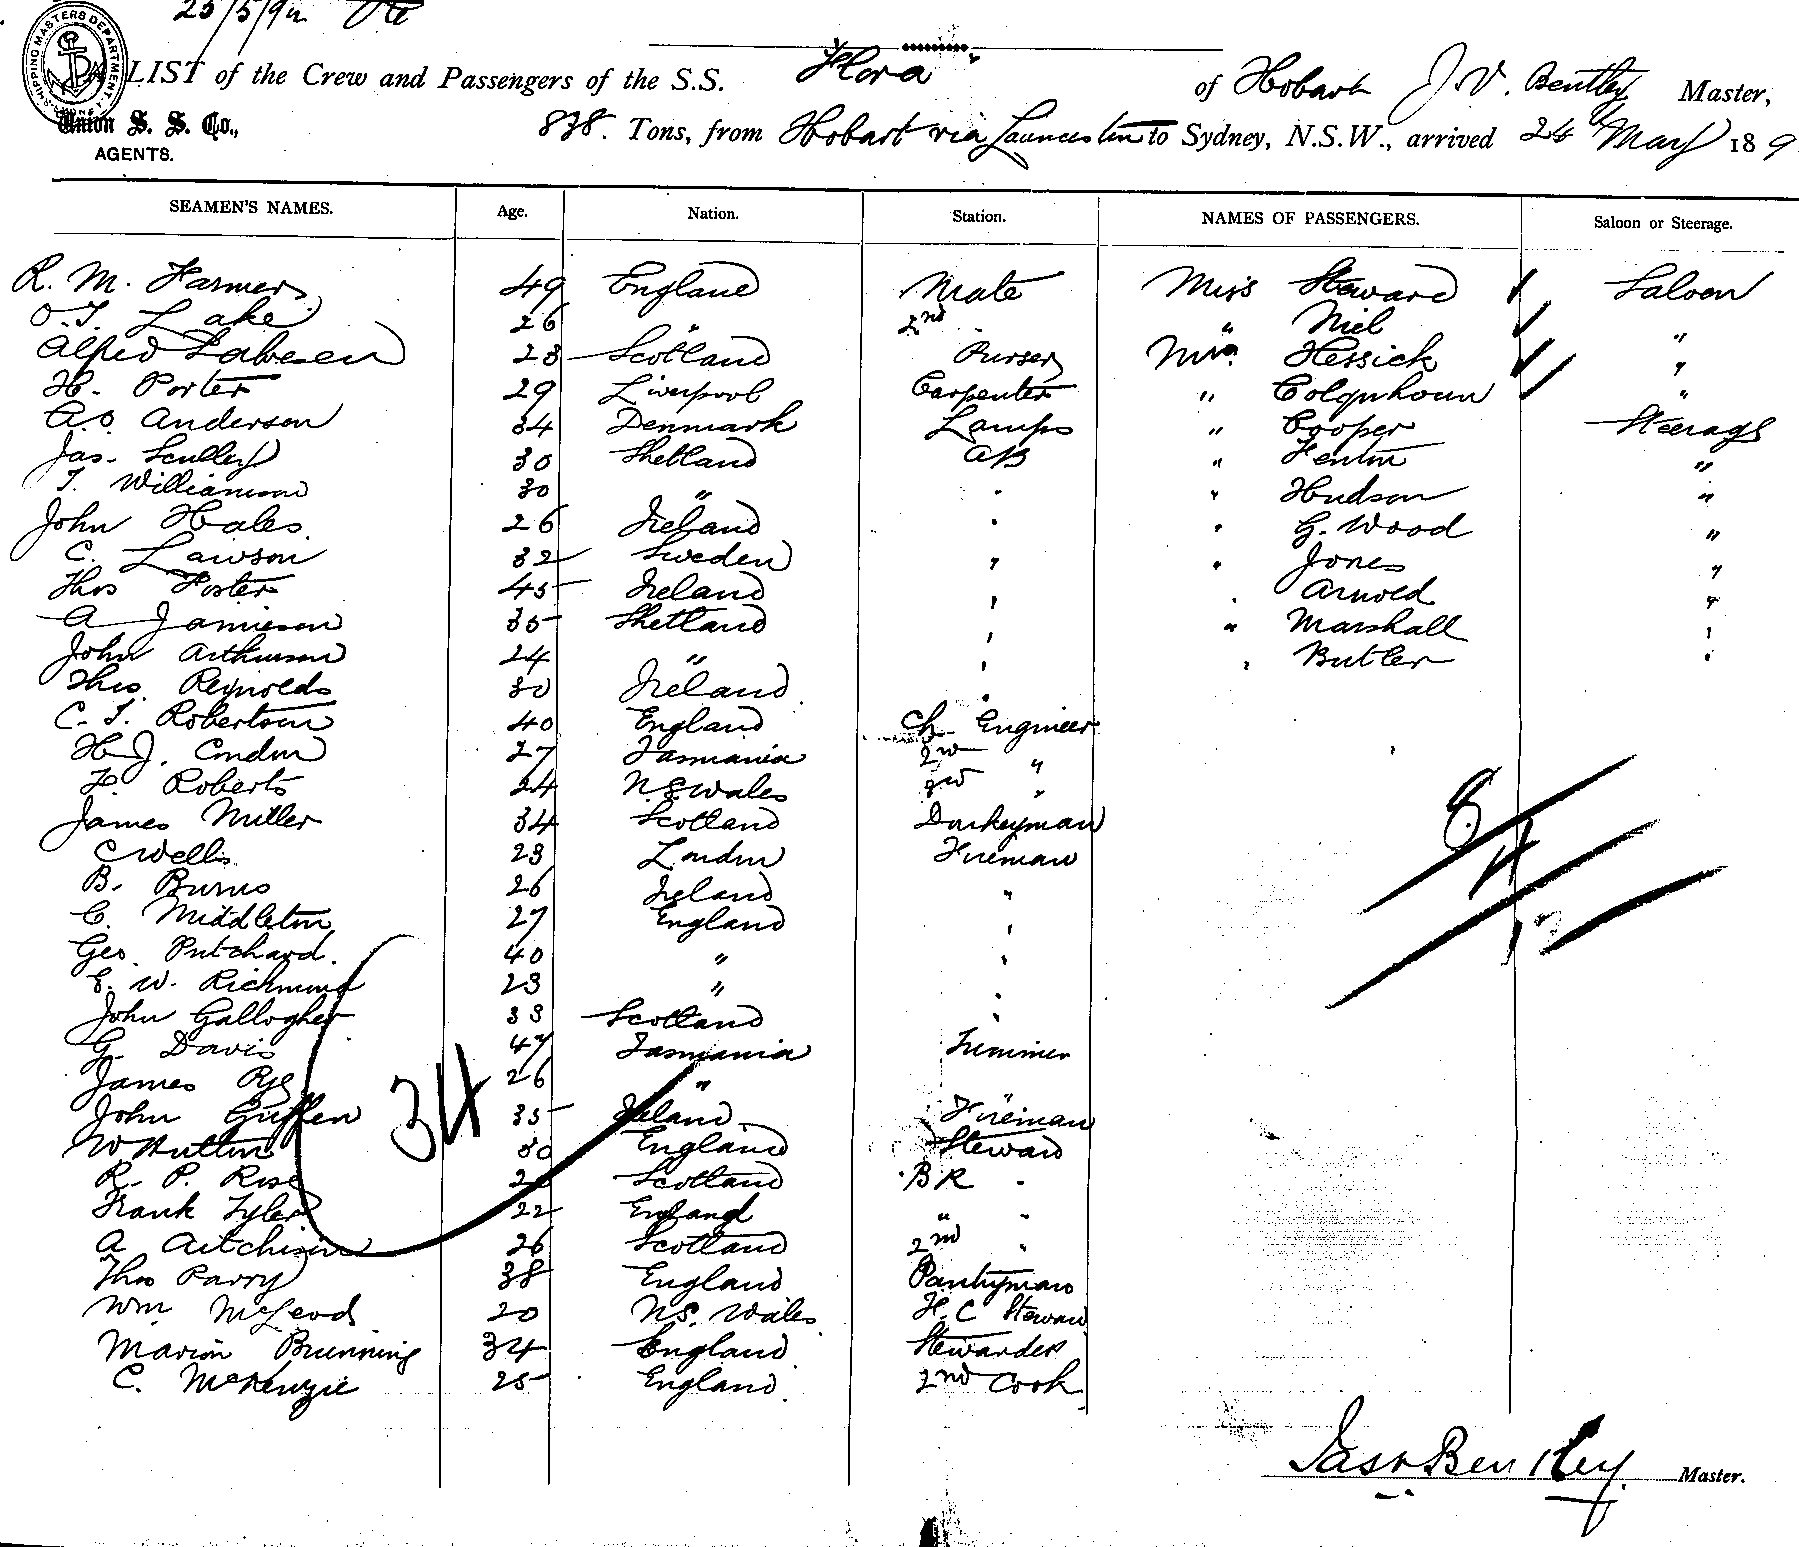 25/5/9
SHIPPING MASTERS DEPARTMENT
LIST of the Crew and Passengers of the S.S. "Flora" of Hobart J. V. Bentley Master,
Union S. S. Co.,
AGENTS.
838. Tons, from Hobart via Launceston to Sydney, N.S.W., arrived 24 May 189
SEAMEN'S NAMES. Age. Nation. Station. NAMES OF PASSENGERS. Saloon or Steerage.
R. M. Farmer 49 England Mate Miss Steward Saloon
O. T. Lake 26 " 2nd " Niel "
Alfred 23 Scotland Purser Mrs. Hessick "
H. Porter 29 Liverpool Carpenter " Colquhoun "
A. O. Anderson 34 Denmark Lamps " Cooper Steerage
Jas. Sculley 30 Shetland AB " Fenton "
T. Williamson 30 " " " Hudson "
John Hales 26 Ireland " " G. Wood "
C. Lawson 32 Sweden " " Jones "
Thos Foster 45 Ireland " " Arnold "
A Jamieson 35 Shetland " " Marshall "
John Arthurson 24 " " " Butler "
Thos. Reynolds 30 Ireland "
C. T. Robertson 40 England Ch. Engineer
H. J. Condon 27 Tasmania 2nd "
F. Roberts 24 N. S. Wales 3rd "
James Miller 34 Scotland Donkeyman
C Wells 23 London Fireman
B. Burns 26 Ireland "
C. Middleton 27 England "
Geo. Pritchard. 40 " "
E. W. Richmond 23 " "
John Gallogher 33 Scotland "
G. Davis 47 Tasmania Trimmer
James Rye 26 "
John Griffen 35 Ireland Fireman
W Hutton 30 England Steward
R. P. Rose Scotland BR "
Frank Tyler 22 England " "
A Aitchison 26 Scotland 2nd "
Thos Parry 38 England Pantryman
Wm McLeod 20 N. S. Wales F. C Steward
Marion Brunning 34 England Stewardess
C. McKenzie 25 England 2nd Cook
34
8
4
12
Jas V Bentley Master.